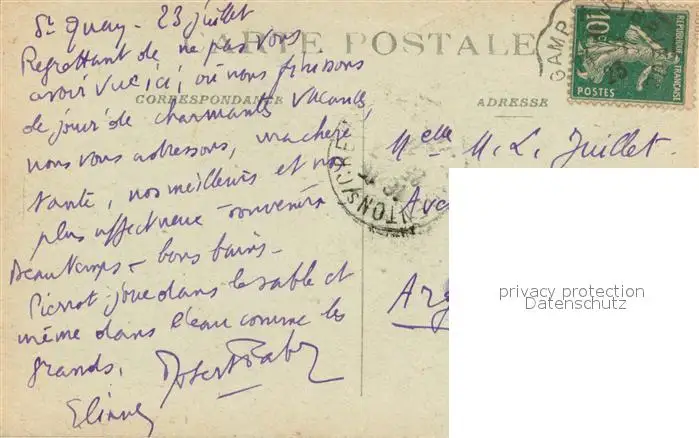 St Quay - 23 juillet
Regrettant de ne pas vous
avoir vue ici, où nous finissons
de jouir de charmantes vacances,
nous vous adressons, ma chère
tante, nos meilleurs et nos
plus affectueux souvenirs
Beau temps - bons bains -
Pierrot joue dans le sable et
même dans l'eau comme les
grands.
CARTE POSTALE
CORRESPONDANCE
ADRESSE
Melle M. L. Juillet
10c
REPUBLIQUE FRANÇAISE
POSTES
privacy protection
Datenschutz